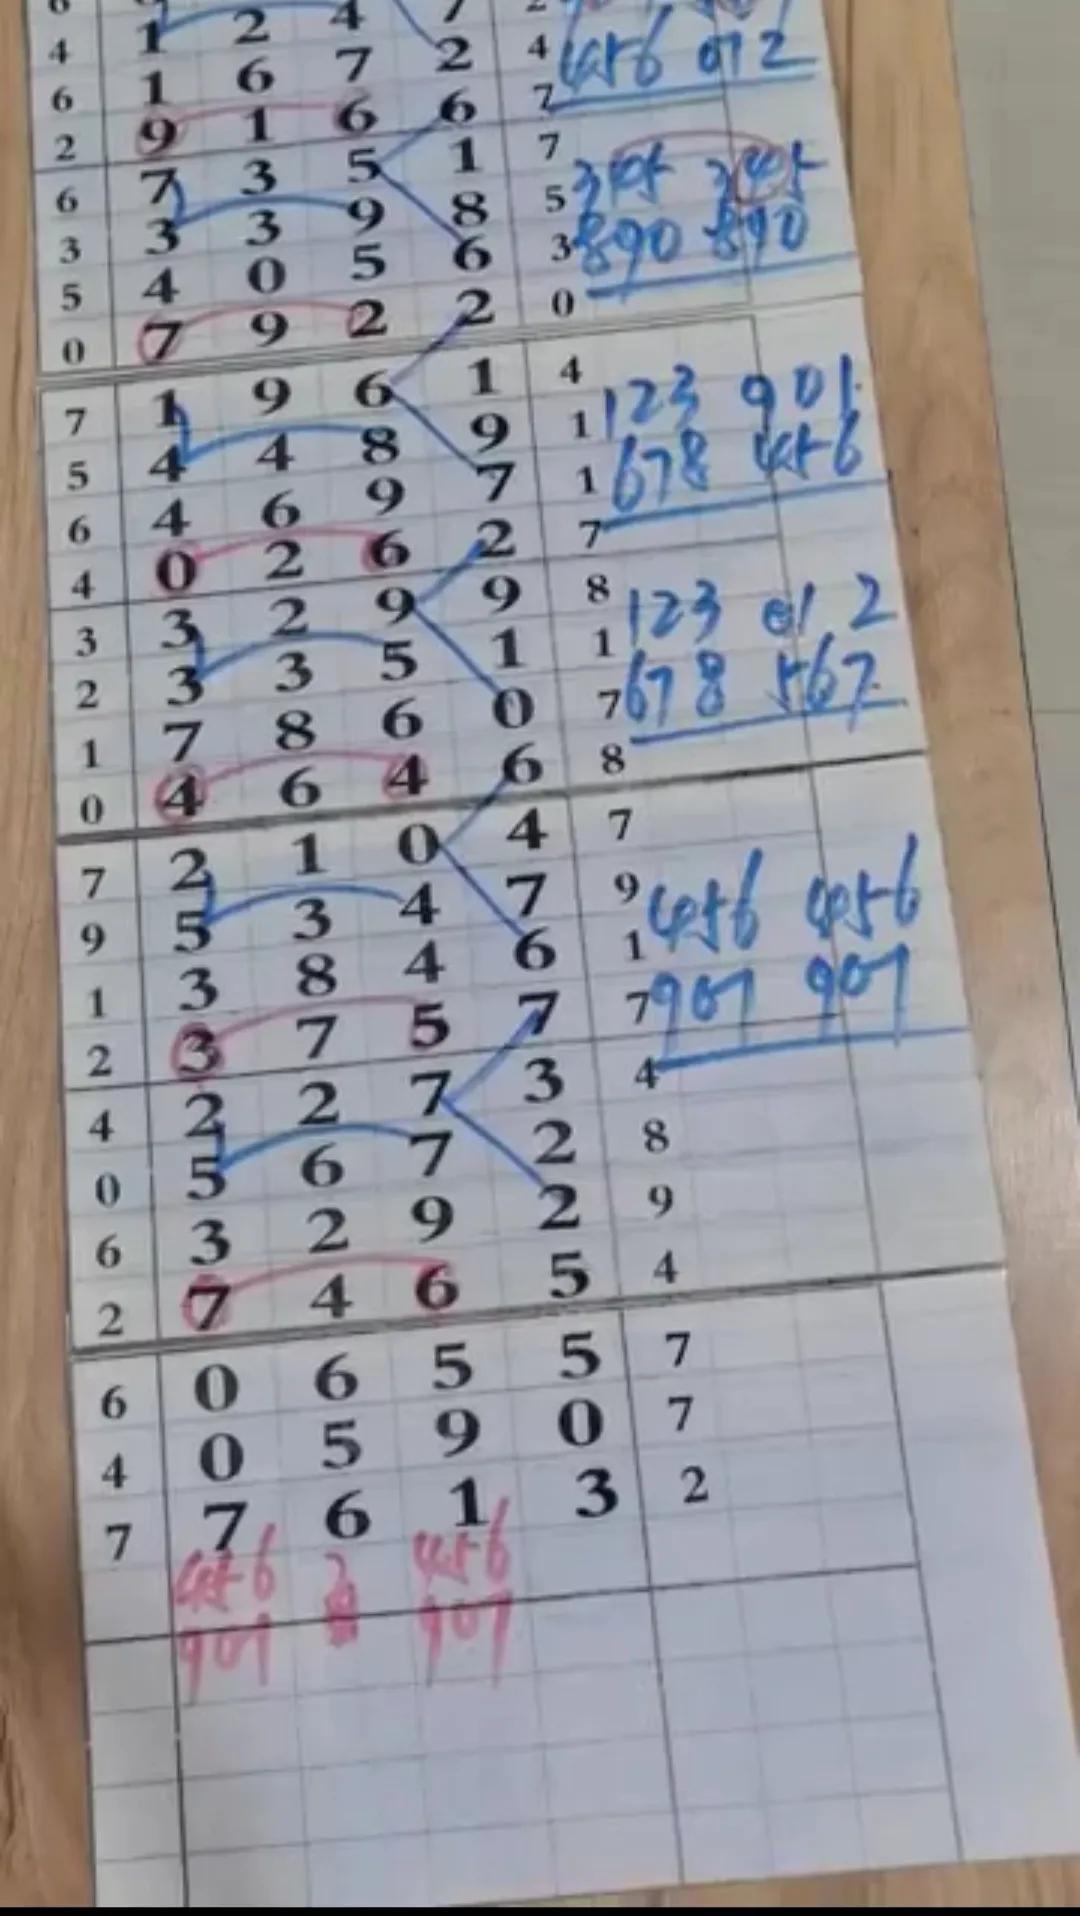 4 1 2 4 7 4 456 012
6 1 6 7 2 7
2 9 1 6 6 7
6 7 3 5 1 5 345 345
3 3 3 9 8 3 890 890
5 4 0 5 6 0
0 7 9 2 2
7 1 9 6 1 4 123 901
5 4 4 8 9 1 678 456
6 4 6 9 7 1
4 0 2 6 2 7
3 3 2 9 9 8 123 012
2 3 3 5 1 1 678 567
1 7 8 6 0 7
0 4 6 4 6 8
7 2 1 0 4 7
9 5 3 4 7 9 456 456
1 3 8 4 6 1 901 901
2 3 7 5 7 7
4 2 2 7 3 4
0 5 6 7 2 8
6 3 2 9 2 9
2 7 4 6 5 4
6 0 6 5 5 7
4 0 5 9 0 7
7 7 6 1 3 2
456 456
901 901